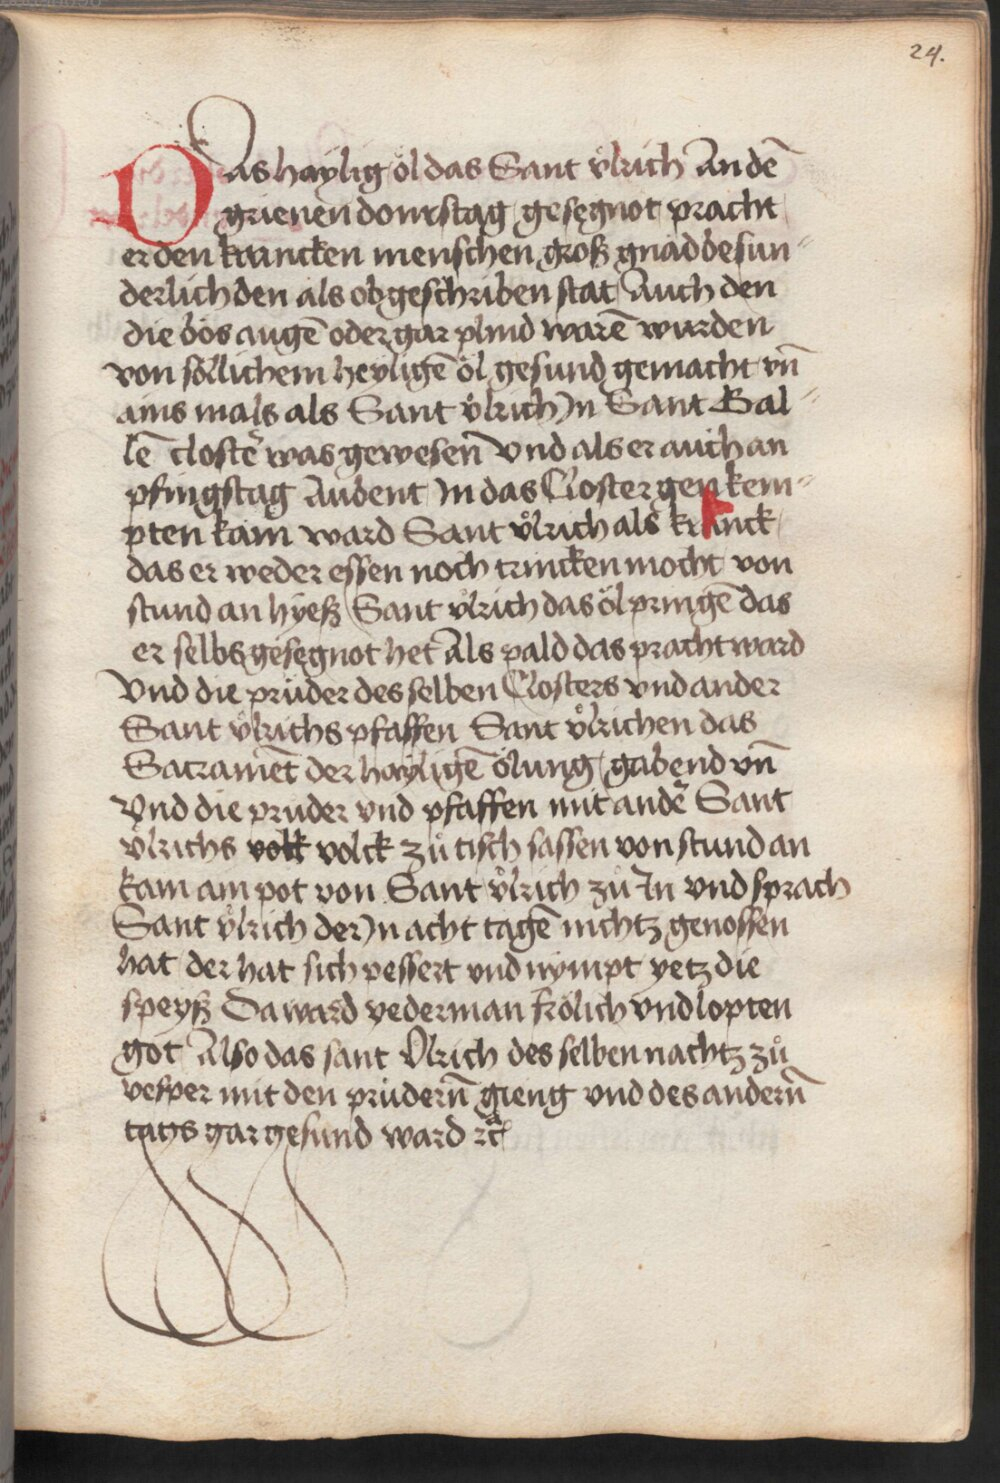 24.
Das haylig öl das Sant vͦlrich An dē
grienen donrstag gesegnot pracht
er den krancken menschen groß gnad besun¬
derlich den als obgeschriben stat Auch den
die bös augē oder gar plind warē wurden
von söllichem heyligē öl gesund gemacht vn̄
ains mals als Sant vͦlrich Jn Sant Gal¬
lē closter was gewesen̄ Vnd als er auch an
pfingstag Aubent Jn das Closter gen kem¬
pten kam ward Sant vͦlrich als kranck
das er weder essen noch trincken mocht von
stund an hyeß Sant vͦlrich das öl pringē das
er selbs gesegnot het Als pald das pracht ward
Vnd die prüder des selben Closters vnd ander
Sant vͦlrichs pfaffen Sant vͦlrichen das
Sacramēt der hayligē ölung gabend vn̄
Vnd die prüder vnd pfaffen mit ander Sant
vͦlrichs volk volck zuͦ tisch sassen von stund an
kam am pot von Sant vͦlrich zuͦ Jn vnd sprach
Sant vͦlrich der Jn acht tagē nichtz genossen
hat der hat sich pessert vnd nympt yetz die
speyß Da ward yederman frölich vnd lopten
got Also das sant Vlrich des selben nachtz zuͦ
vesper mit den prüdern̄ gieng vnd des andern̄
tags gar gesund ward